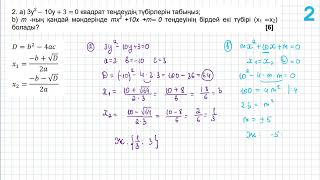 2. а) 3y² – 10y + 3 = 0 квадрат теңдеудің түбірлерін табыңыз;
b) m -ның қандай мәндерінде mx² +10x +m= 0 теңдеуінің бірдей екі түбірі (x₁ =x₂)
болады? [6]
2
D = b² − 4ac
x₁ = (−b + √D) / 2a
x₂ = (−b − √D) / 2a
а)
3y² − 10y + 3 = 0
a=3 b=−10 c=3
D = (−10)² − 4·3·3 = 100 − 36 = 64
x₁ = (10 + √64) / (2·3) = (10 + 8) / 6 = 18/6 = 3
x₂ = (10 − √64) / (2·3) = (10 − 8) / 6 = 2/6 = 1/3
Ж: {1/3 ; 3}
mx² + 10x + m = 0
x₁ = x₂ D = 0
10² − 4·m·m = 0
100 − 4m² = 0
m = ±5
Ж: −5